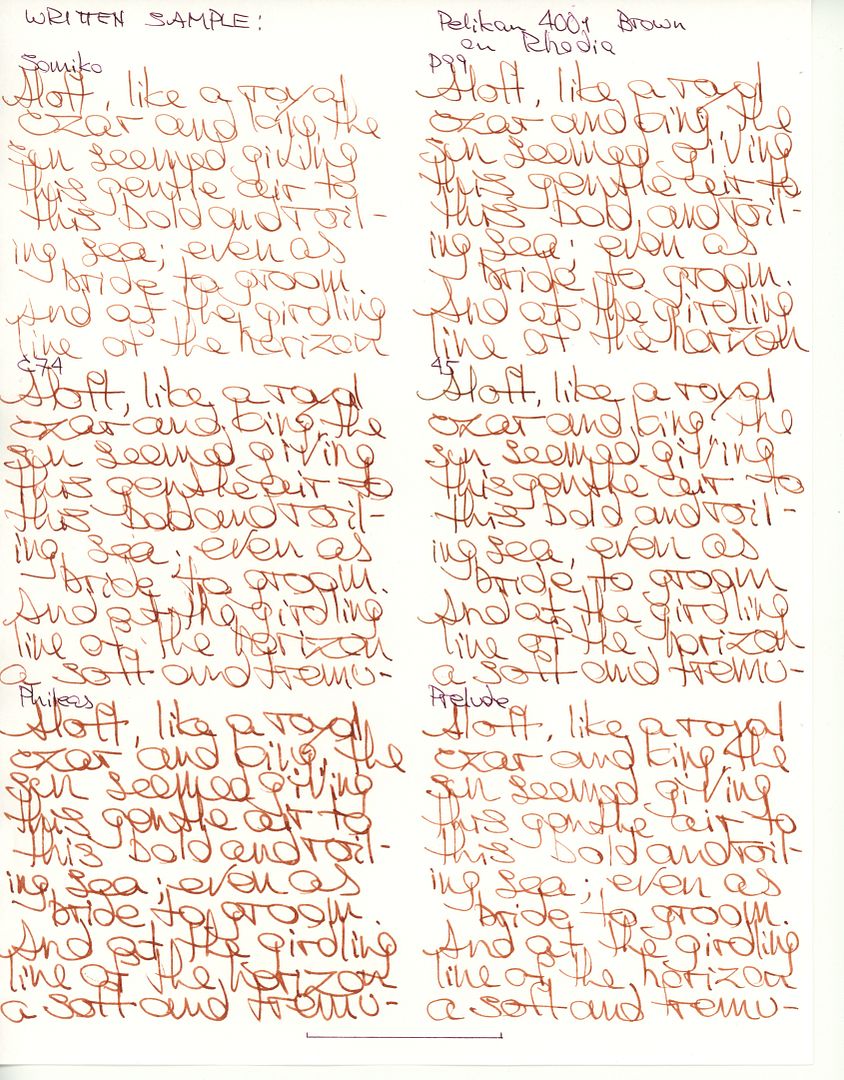 WRITTEN SAMPLE:
Pelikan 4001 Brown
on Rhodia
Somiko
Aloft, like a royal
czar and king, the
sun seemed giving
this gentle air to
this bold and roil-
ing sea; even as
bride to groom.
And at the girdling
line of the horizon
P99
Aloft, like a royal
czar and king, the
sun seemed giving
this gentle air to
this bold and roil-
ing sea; even as
bride to groom.
And at the girdling
line of the horizon
C74
Aloft, like a royal
czar and king, the
sun seemed giving
this gentle air to
this bold and roil-
ing sea; even as
bride to groom.
And at the girdling
line of the horizon
a soft and tremu-
45
Aloft, like a royal
czar and king, the
sun seemed giving
this gentle air to
this bold and roil-
ing sea, even as
bride to groom
And at the girdling
line of the horizon
a soft and tremu-
Phileas
Aloft, like a royal
czar and king, the
sun seemed giving
this gentle air to
this bold and roil-
ing sea; even as
bride to groom.
And at the girdling
line of the horizon
a soft and tremu-
Prelude
Aloft, like a royal
czar and king, the
sun seemed giving
this gentle air to
this bold and roil-
ing sea; even as
bride to groom.
And at the girdling
line of the horizon
a soft and tremu-